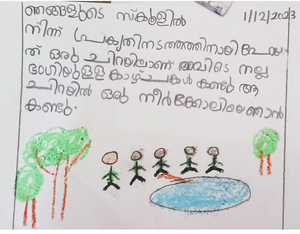 ഞങ്ങളുടെ സ്കൂളിൽ 1/12/2023
നിന്ന് പ്രകൃതിനടത്തത്തിനായി പോയ
ത് ഒരു ചിറയിലാണ് അവിടെ നല്ല
ഭംഗിയുള്ള കാഴ്ചകൾ കണ്ടു ആ
ചിറയിൽ ഒരു നീർക്കോലിയെ ഞാൻ
കണ്ടു.